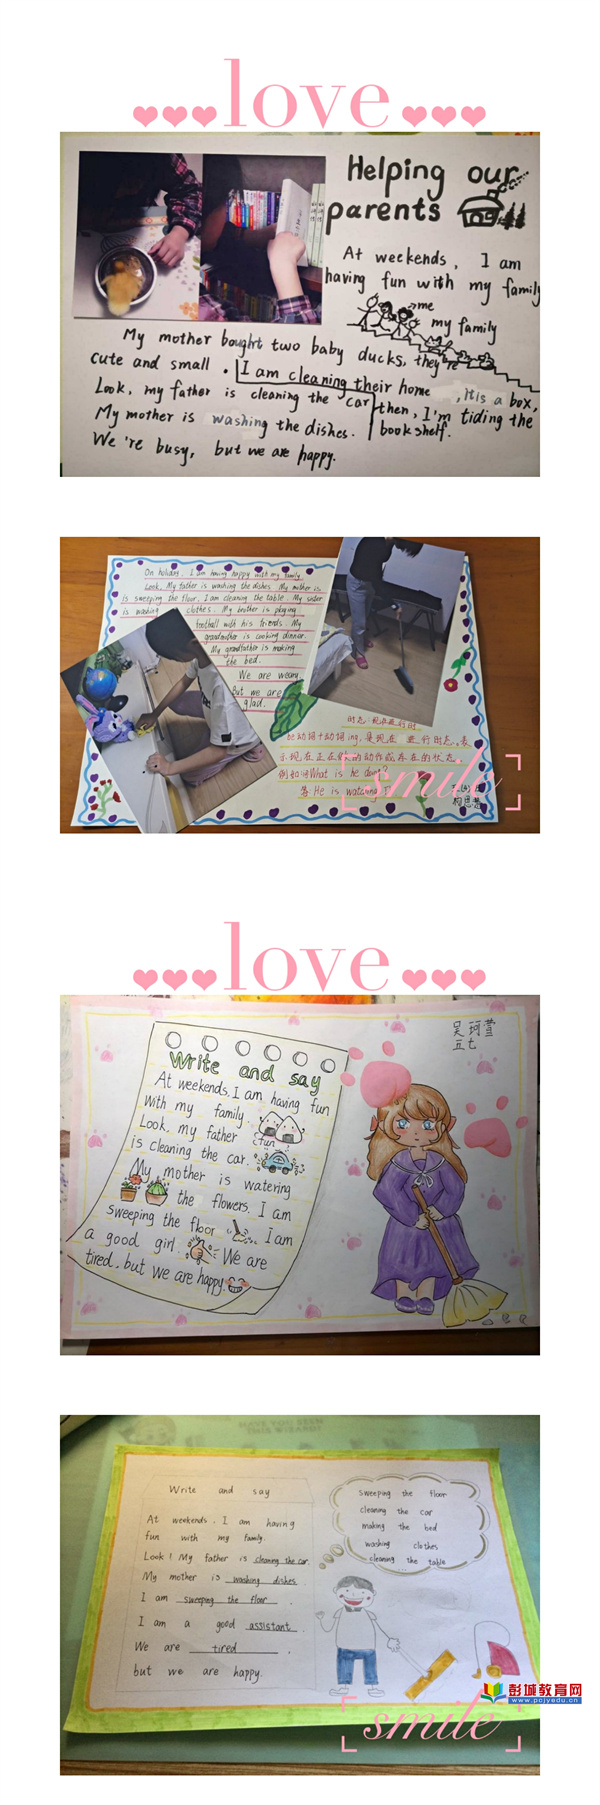 love
Helping our
parents
At weekends, I am
having fun with my family
→me
my family
My mother bought two baby ducks, they're
cute and small. I am cleaning their home, itis a box,
Look, my father is cleaning the car then, I'm tiding the
My mother is washing the dishes. book shelf.
We're busy, but we are happy.
On holiday, I am having happy with my family
Look, My father is washing the dishes My mother is
is sweeping the floor, I am cleaning the table. My sister
is washing clothes. My brother is playing
football with his friends. My
grandmother is cooking dinner.
My grandfather is making
the bed.
We are weary,
But we are
glad.
时态:现在进行时
be动词+动词ing,是现在进行时态.表
示现在正在做的动作或存在的状态.
例如:问What is he doing?
答:He is watching T
smile
love
吴珂萱
五七
Write and say
At weekends, I am having fun
with my family.
fun
Look, my father
is cleaning the car.
My mother is watering
the flowers. I am
sweeping the floor I am
a good girl. We are
tired, but we are happy.
Write and say
At weekends, I am having
fun with my family.
Look! My father is cleaning the car.
My mother is washing dishes.
I am sweeping the floor.
I am a good assistant.
We are tired,
but we are happy.
sweeping the floor
cleaning the car
making the bed
washing clothes
cleaning the table
...
smile
彭城教育网
www.pcjyedu.cn